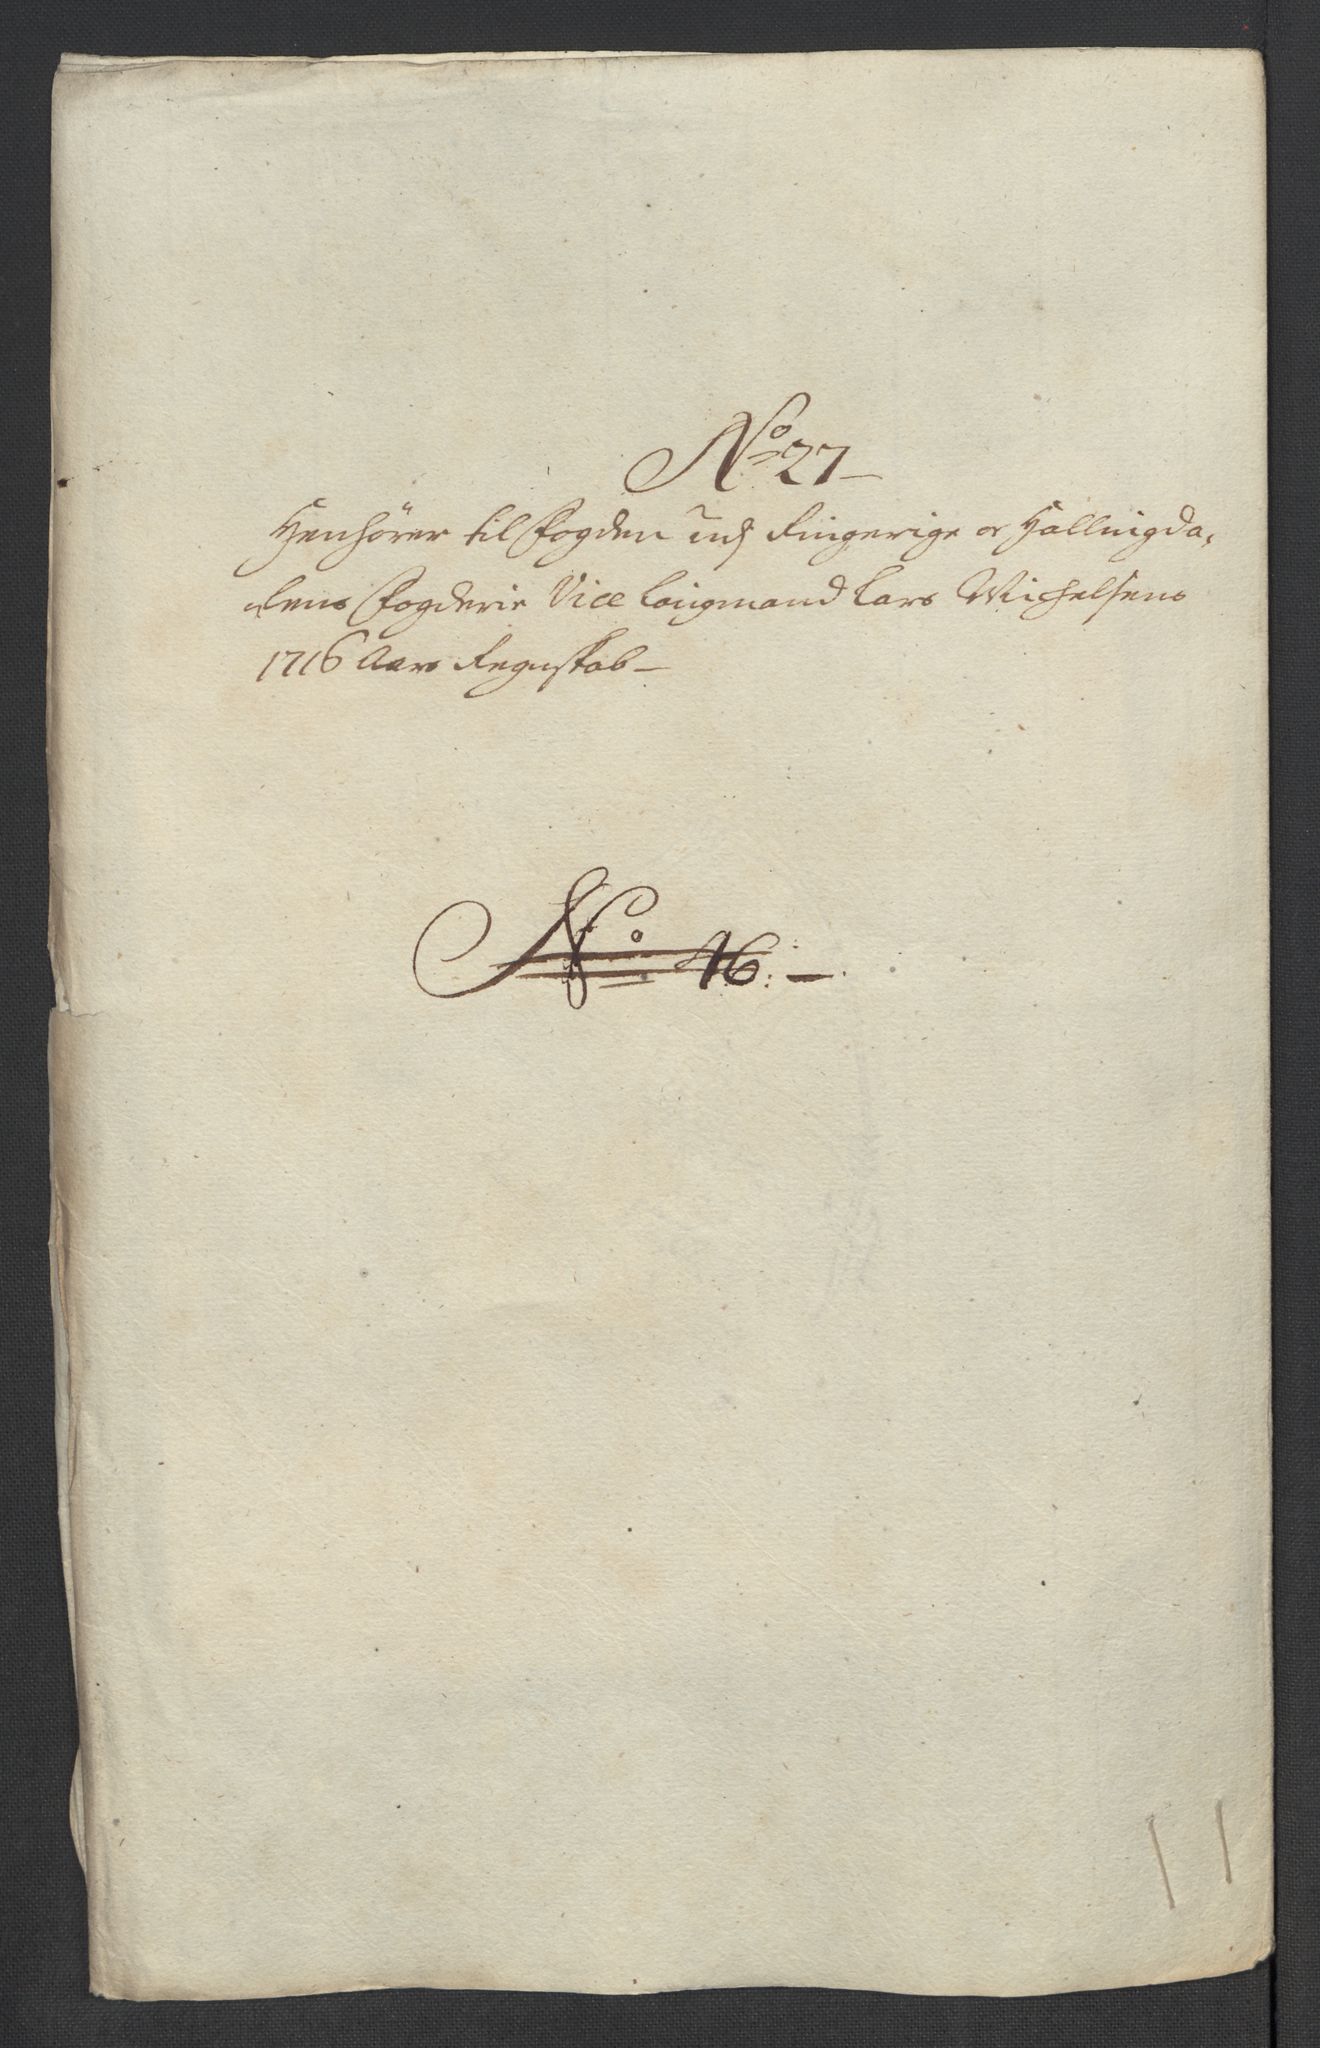 No 27
Henhører til Fogden udj Ringerige oc Hallingda,
lens Fogderie Vice Laugmand Lars Michelsens
1716 Aars Regnskab
No 46.